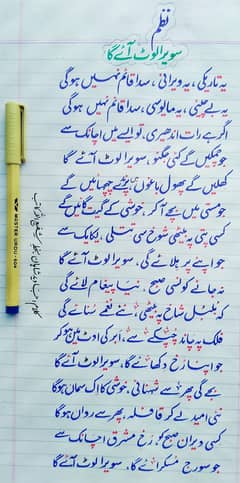 نظم
سویرا لوٹ آئے گا
یہ تاریکی، یہ ویرانی، سدا قائم نہیں ہوگی
یہ بے چینی، یہ مایوسی، سدا قائم نہیں ہوگی
اگر ہے رات اندھیری، تو ایسے میں اچانک سے
جو چمکیں گے کئی جگنو، سویرا لوٹ آئے گا
کھلیں گے پھول باغوں میں، پرندے چہچہائیں گے
جو مستی میں بچے آکر، خوشی کے گیت گائیں گے
کسی پتی پہ بیٹھی شوخ سی تتلی، یکایک سے
جو اپنے پر ہلائے گی، سویرا لوٹ آئے گا
نہ جانے کونسی صبح، نیا پیغام لائے گی
کہ بلبل شاخ پہ بیٹھی، نئے نغمے سنائے گی
فلک پہ چاند چپکے سے، ابر کی اوٹ میں ہو کر
جو اپنا رخ دکھائے گا، سویرا لوٹ آئے گا
بجے گی پھر سے شہنائی، خوشی کا اک سماں ہوگا
نئی امید لے کر قافلہ، پھر سے رواں ہوگا
کسی ویران صبح کو، رخِ مشرق اچانک سے
جو سورج مسکرائے گا، سویرا لوٹ آئے گا
کلام:
MASTER URDU-604